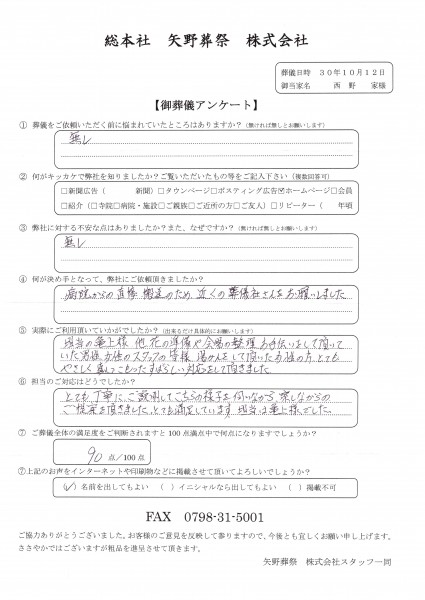 総本社　矢野葬祭　株式会社
葬儀日時　３０年１０月１２日
御当家名　西　野　家様
【御葬儀アンケート】
① 葬儀をご依頼いただく前に悩まれていたところはありますか？（無ければ無しとお願いします）
無し
② 何がキッカケで弊社を知りましたか？ご覧いただいたもの等をご記入下さい（複数回答可）
□新聞広告（　　　新聞）□タウンページ□ポスティング広告☑ホームページ□会員
□紹介（□寺院□病院・施設□ご親族□ご近所の方□ご友人）□リピーター（　　年頃
③ 弊社に対する不安な点はありましたか？また、なぜですか？（無ければ無しとお願いします）
無し
④ 何が決め手となって、弊社にご依頼頂きましたか？
病院からの直接搬送のため、近くの葬儀社さんをお願いしました
⑤ 実際にご利用頂いていかがでしたか？（出来るだけ具体的にお願いします）
担当の 上様、他、花の準備や会場の整理、お手伝いをして頂いて
いた 女性のスタッフの皆様、湯かんをして頂いた 方、とても
やさしく、 すばらしい対応をして頂きました
⑥ 担当のご対応はどうでしたか？
とても丁寧に、ご説明してこちらの様子を伺いながら、察しながらの
ご提案を頂きました。とても満足しています。担当は 上様でした。
⑦ ご葬儀全体の満足度をご判断されますと 100 点満点中で何点になりますでしょうか？
90 点／100 点
⑦上記のお声をインターネットや印刷物などに掲載させて頂いてよろしいでしょうか？
（✓）名前を出してもよい　（　）イニシャルなら出してもよい　（　）掲載不可
FAX　0798-31-5001
ご協力ありがとうございました。お客様のご意見を反映して参りますので、今後とも宜しくお願い申し上げます。
ささやかではございますが粗品を進呈させて頂きます。
矢野葬祭　株式会社スタッフ一同